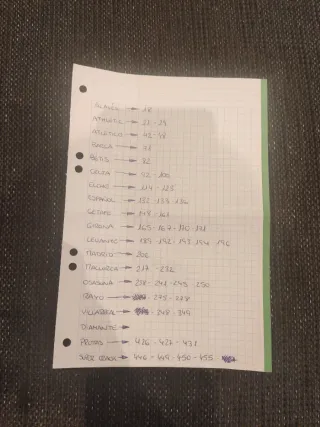 ALAVÉS → 18
ATHLETIC → 21 - 24
ATLETICO → 42 - 48
BARÇA → 51
BETIS → 82
CELTA → 92 - 100
ELCHE → 114 - 123
ESPANYOL → 132 - 133 - 134
GETAFE → 148 - 161
GIRONA → 165 - 167 - 170 - 171
LEVANTE → 185 - 192 - 193 - 194 - 196
MADRID → 202
MALLORCA → 217 - 232
OSASUNA → 238 - 241 - 245 - 250
RAYO → 275 - 278
VILLAREAL → 348 - 349
DIAMANTE →
PROTAS → 426 - 427 - 431
SUPER CRACK → 446 - 449 - 450 - 455